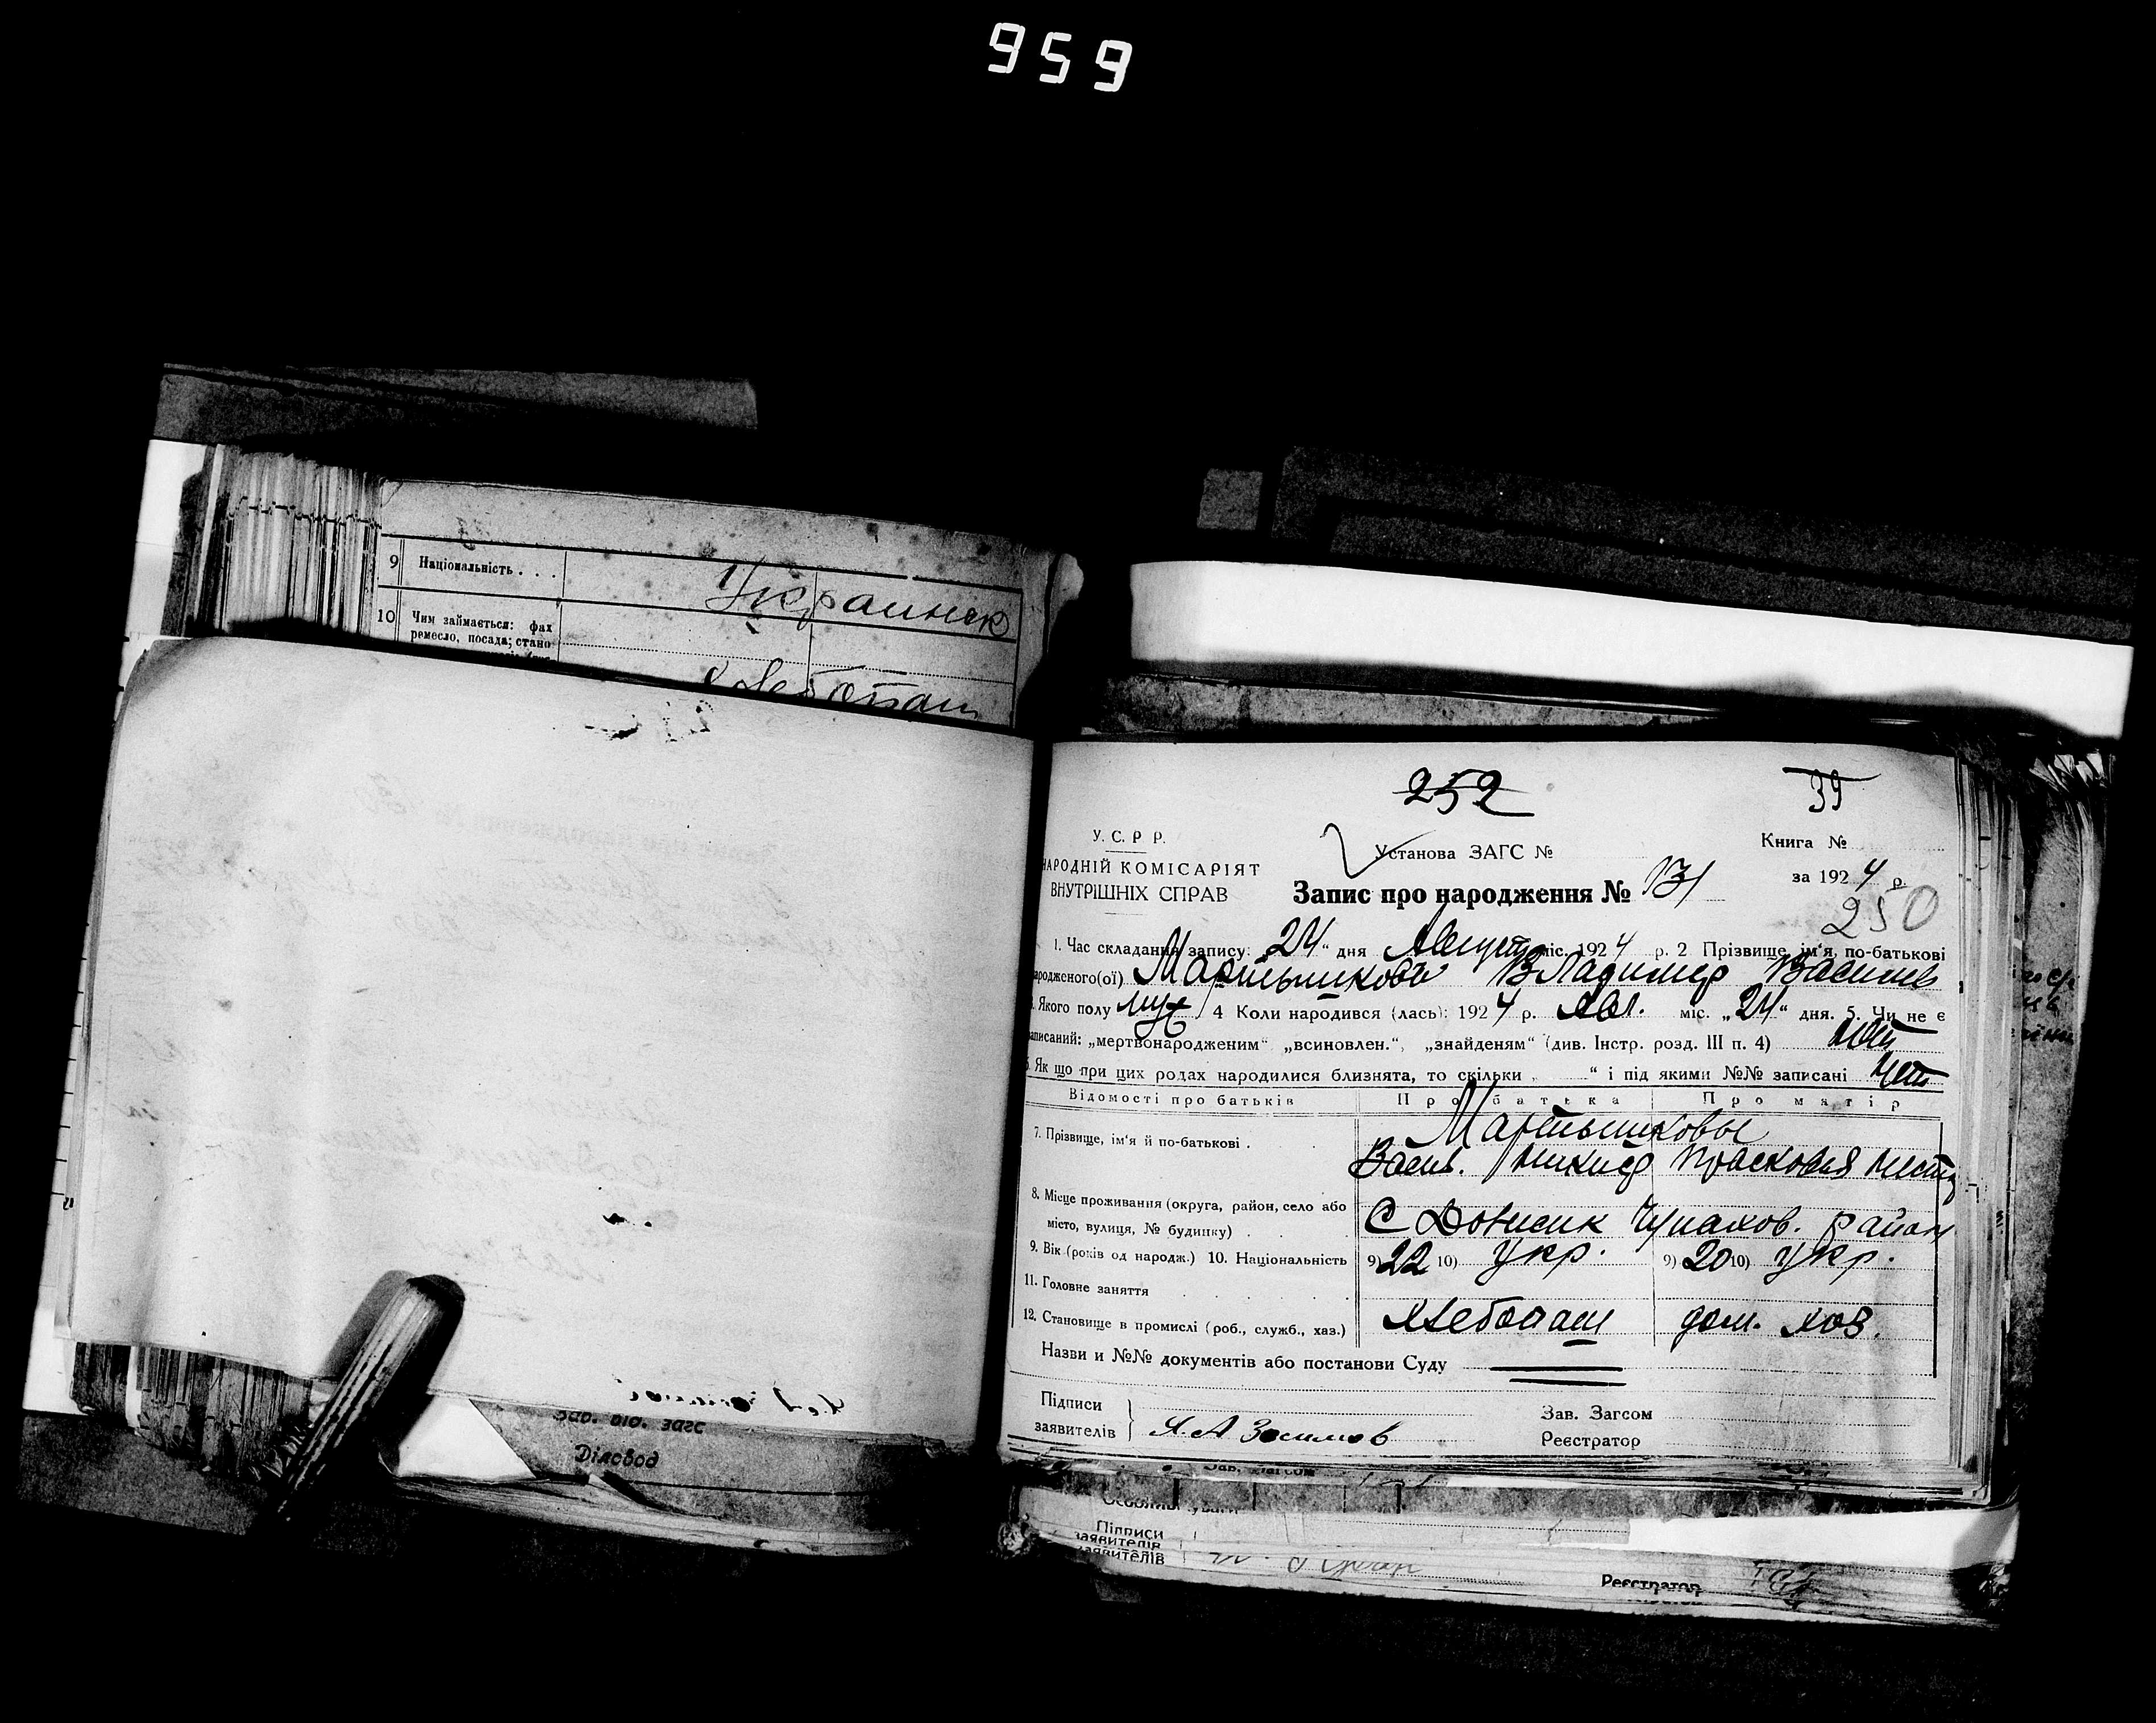 959
9 Національність . . .
Украинск
10 Чим займається: фах
ремесло, посада; стано
хлебопаш
Зав. від. загс
Діловод
252
39
У. С. Р. Р.
Установа ЗАГС №
Книга №
НАРОДНІЙ КОМІСАРІЯТ
за 1924 р.
ВНУТРІШНІХ СПРАВ
Запис про народження № 131
250
1. Час складання запису: „24“ дня Август міс. 1924 р. 2 Прізвище, ім'я, по-батькові
народженого(ої) Мартышков Владимир Василев
3. Якого полу муж 4 Коли народився (лась): 1924 р. Авг. міс. „24“ дня. 5. Чи не є
записаний: „мертвонародженим“ „всиновлен.“, „знайденям“ (див. Інстр. розд. III п. 4) нет
6. Як що при цих родах народилися близнята, то скільки „ “ і під якими №№ записані нет
Відомості про батьків Про батька Про матір
7. Прізвище, ім'я й по-батькові . Мартышковы
Васил. Никиф Прасковья
8. Місце проживання (округа, район, село або
місто, вулиця, № будинку) С Довжик Чупахов. район
9. Вік (років од народж.) 10. Національність 9) 22 10) Укр. 9) 20 10) Укр.
11. Головне заняття
12. Становище в промислі (роб., служб., хаз.) Хлебопаш дом. хоз.
Назви и №№ документів або постанови Суду
Підписи
Зав. Загсом
заявителів
Реєстратор
Зав. Загсом
Підписи
заявителів
заявителів
Реєстратор